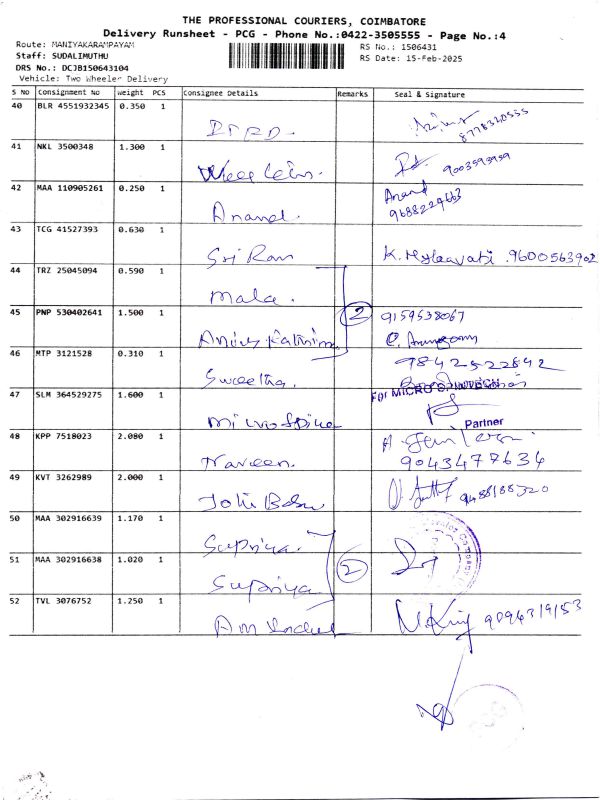 THE PROFESSIONAL COURIERS, COIMBATORE
Delivery Runsheet - PCG - Phone No.:0422-3505555 - Page No.:4
Route: MANIYAKARAMPAYAM
RS No.: 1506431
Staff: SUDALIMUTHU
RS Date: 15-Feb-2025
DRS No.: DCJB150643104
Vehicle: Two Wheeler Delivery
S No Consignment No Weight PCS Consignee Details Remarks Seal & Signature
40 BLR 4551932345 0.350 1
8778320555
41 NKL 3500348 1.300 1
9003593959
42 MAA 110905261 0.250 1
Anand. Anand
9688229663
43 TCG 41527393 0.630 1
Sri Ram K. Myleavati .9600563902
44 TRZ 25045094 0.590 1
Mala.
45 PNP 530402641 1.500 1 2 9159538067
46 MTP 3121528 0.310 1 9842522842
Swetha.
47 SLM 364529275 1.600 1 For MICRO SPINTECH
Micro Spine Partner
48 KPP 7518023 2.080 1
Naveen. 9043477634
49 KVT 3262989 2.000 1
Joti Babu 9488188520
50 MAA 302916639 1.170 1
Supriya.
51 MAA 302916638 1.020 1 2
Supriya
52 TVL 3076752 1.250 1
9094319153